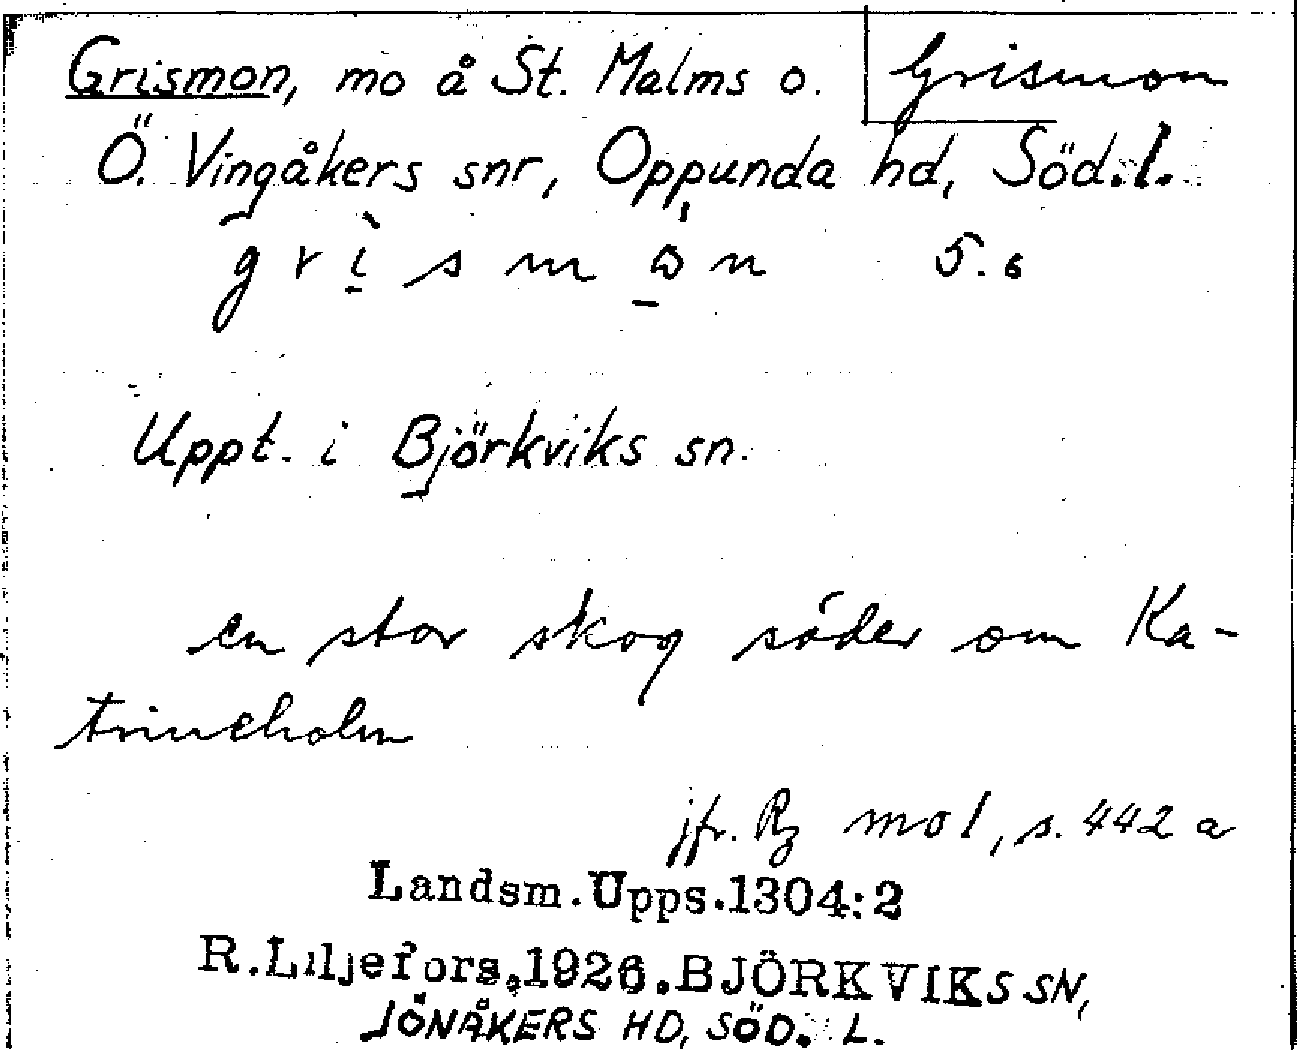 Grismon, mo å St. Malms o. Grismon
Ö. Vingåkers snr, Oppunda hd, Söd.l.
5.6
Uppt. i Björkviks sn.
en stor skog söder om Ka-
trineholm
jfr. Rz mo 1, s. 442 a
Landsm.Upps.1304:2
R.Liljefors.1926.BJÖRKVIKS SN,
JÖNÅKERS HD, SÖD. L.